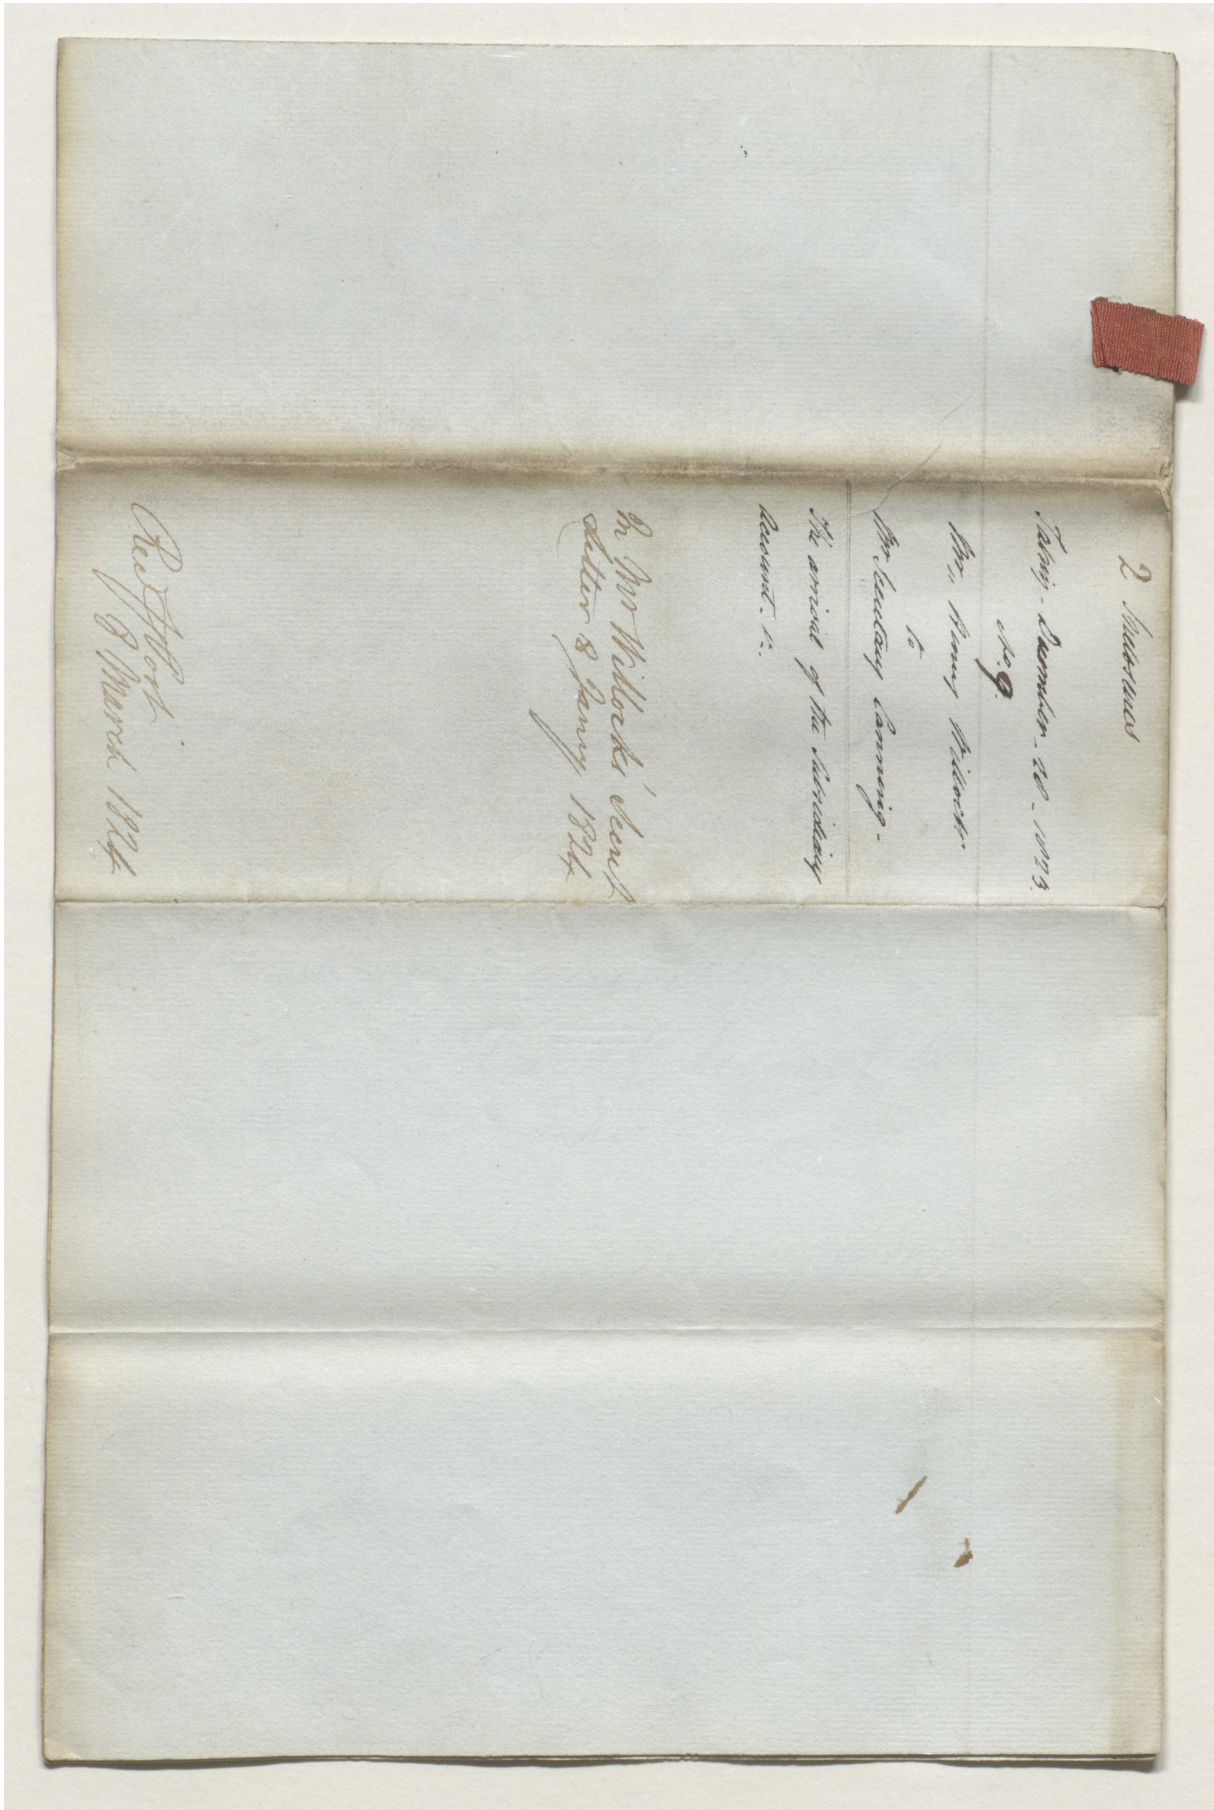 2 Inclosures
Tabriz - December - 20 - 1823.
No. 9.
Mr. Henry Willock
to
Mr Secretary Canning -
The arrival of the Subsidiary
Account. &c.
In Mr Willock's Secret
Letter 8 Janry 1824
Rec
8 March 1824